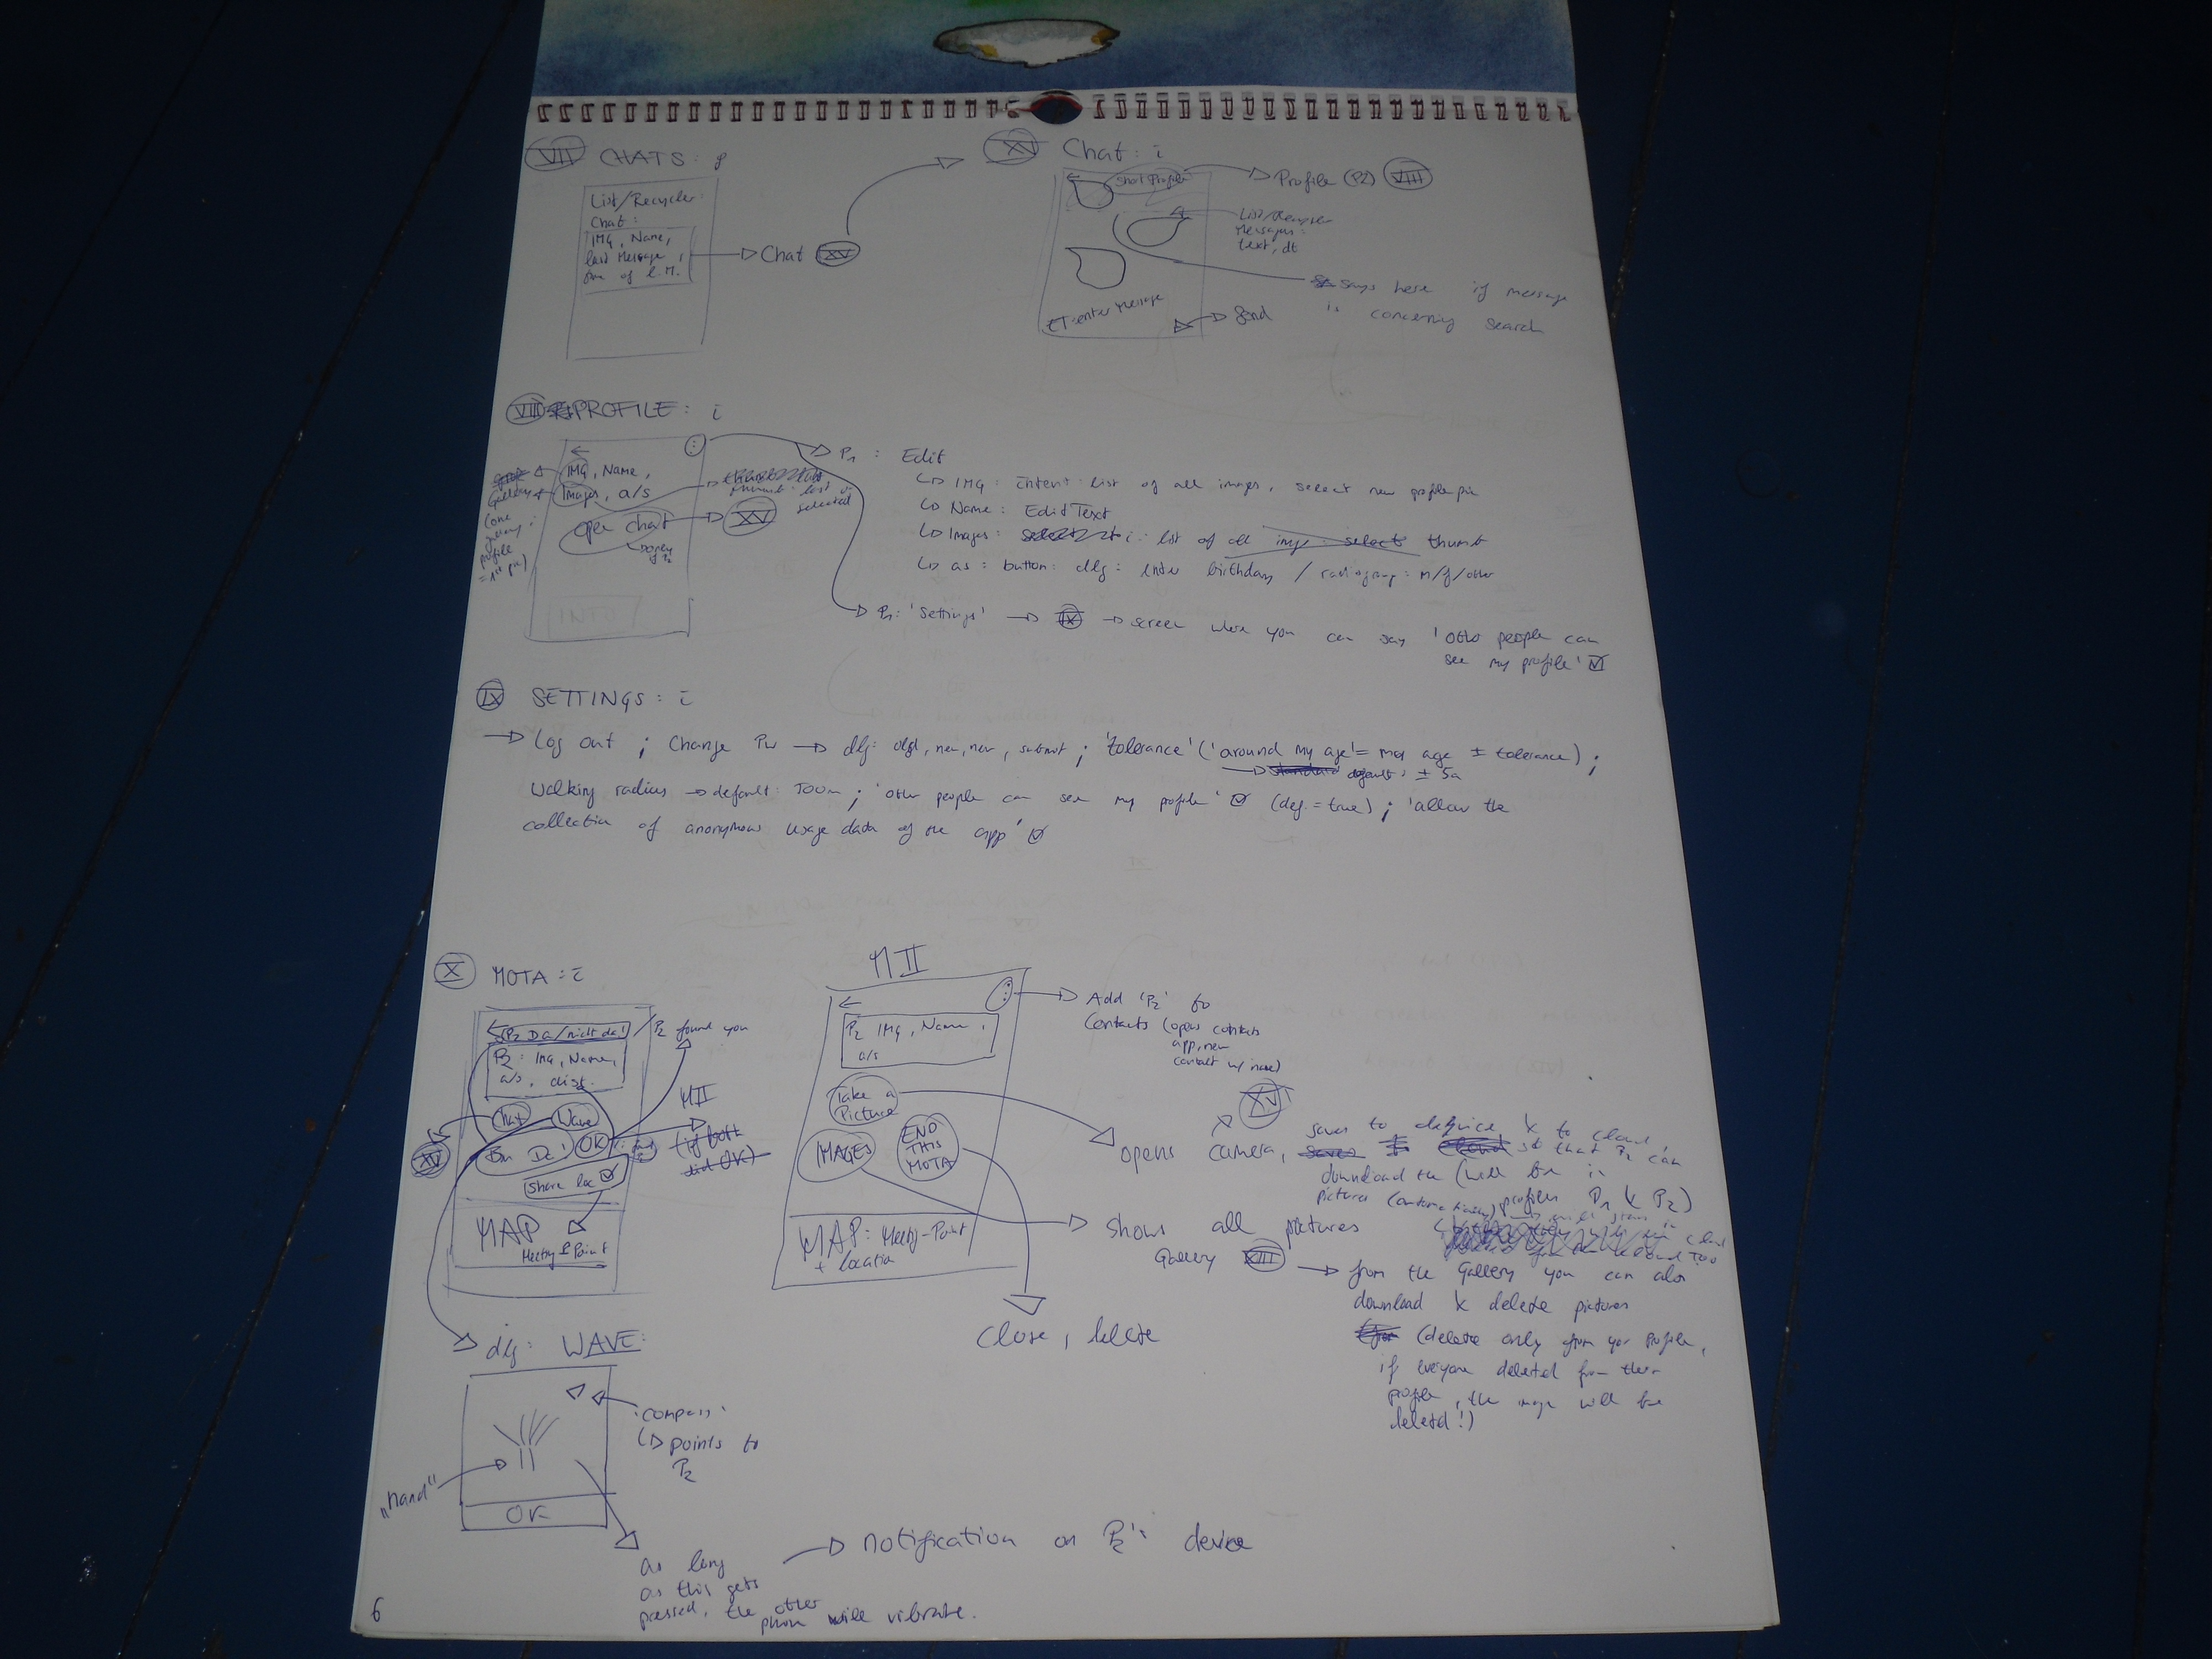 VII CHATS:
List/Recycler:
Chat:
IMG, Name,
last Message,
time of l.M.
Chat XV
XV Chat: i
Short Profile
Profile (P2) VIII
List/Recycler
Messages:
text, dt
says here if message
is concerning search
ET: enter Message
Send
VIII PROFILE: i
IMG, Name,
Images, a/s
open chat
XV
only
Gallery
(one
profile
= 1st pic)
thumb: list of
selected
P1: Edit
IMG: intent: list of all images, select new profile pic
Name: EditText
Images: i: list of all imgs: select thumb
as: button: dlg: enter birthday / radiogroup: m/f/other
P1: 'Settings' → IX → screen where you can say 'other people can
see my profile' ☑
IX SETTINGS: i
→ Log out ; Change PW → dlg: old, new, new, submit ; 'tolerance' ('around my age' = my age ± tolerance) ;
→ standard default: ± 5a
Walking radius → default: 700m ; 'other people can see my profile' ☑ (def. = true) ; 'allow the
collection of anonymous usage data of the app' ☑
X MOTA: i
P2 Da/nicht da! / P2 found you
P2: IMG, Name,
a/s, dist.
Chat Wave
Bin Da! OK
XV
MII
(if both
did OK)
Share loc ☑
MAP
Meeting Point
MII
P2 IMG, Name,
a/s
Take a
Picture
IMAGES
END
THIS
MOTA
MAP: Meeting-Point
+ location
Add 'P2' to
Contacts (opens contacts
app, new
contact w/ name)
XV
opens camera, saves to device & to cloud,
so that P2 can
download the (will be in
pictures (automatically) profiles P1 & P2)
shows all pictures
Gallery XIII → from the Gallery you can also
download & delete pictures
(delete only from your profile,
if everyone deleted from their
profile, the image will be
deleted!)
Close, delete
dlg: WAVE:
compass:
points to
P2
"Hand"
OK
as long
as this gets
pressed, the other
phone will vibrate.
→ notification on P2's device
6